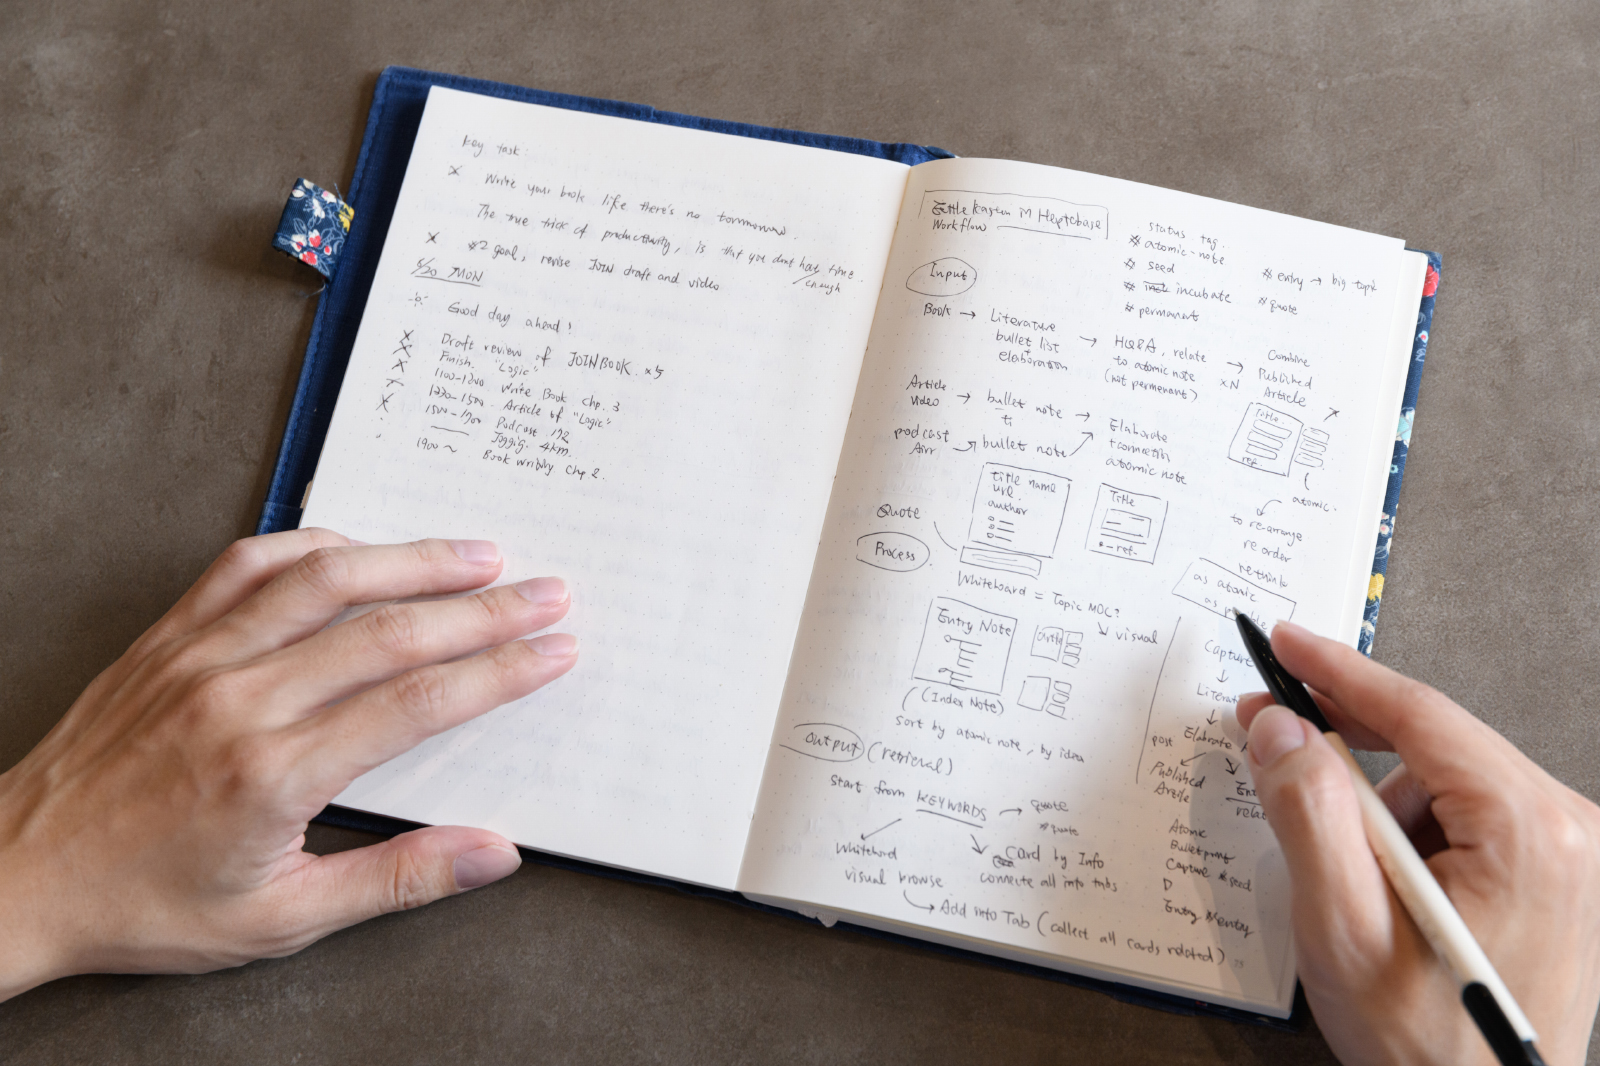 key task:
Write your book like there's no tommorow.
The true trick of productivity, is that you don't have time
/enough
#2 goal, revise JOIN draft and video
5/20 MON
Good day ahead!
Draft review of JOINBOOK. x5
Finish. "Logic"
1100-1200 Write Book Chp. 3
1230-1500 - Article of "Logic"
1500-1700 Podcast 192
Jogging 4km.
1900 ~ Book writing Chp 2.
Zettelkasten in Heptabase
Workflow
status tag.
# atomic-note
# seed
# incubate
# permanent
# entry → big topic
# quote
Input
Book → Literature
bullet list
elaboration
→ HQ&A, relate
to atomic note
(not permenant)
xN
→ Combine
Published
Article
Article
Video → bullet note →
podcast
→ bullet note
Elaborate
+connection
atomic note
Title
ref.
atomic.
to re-arrange
re order
rethink
Title name
url
author
Title
ref.
Quote
Process
as atomic
as
Whiteboard = Topic MOC?
visual
Entry Note
(Index Note)
sort by atomic note, by idea
Capture
↓
↓
Elaborate
post
Published
Article
Output (retrieval)
start from KEYWORDS → quote
#quote
Whiteboard
visual browse
Card by Info
connecte all into tabs
Add into Tab (collect all cards related)
Atomic
Bulletpoint
Capture #seed
D
Entry #entry